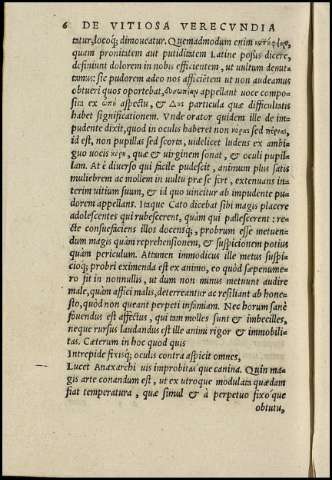 6 DE VITIOSA VERECVNDIA
tatur, locoq; dimoueatur. Quemadmodum enim
quam pronitatem aut putiditatem Latine possis dicere,
definiunt dolorem in nobis efficientem, ut uultum demit
tamus: sic pudorem adeo nos afficiētem ut non audeamus
obtueri quos oportebat, δυσωπίαν appellant uoce compo
sita ex ὠπὸ aspectu, & Δυς particula quæ difficultatis
habet significationem. Vnde orator quidem ille de im-
pudente dixit, quod in oculis haberet non κόρας sed πόρνας,
id est, non pupillas sed scorta, uidelicet ludens ex ambi
guo uocis κόρη, quæ & uirginem sonat, & oculi pupil
lam. At è diuerso qui facile pudescit, animum plus satis
muliebrem ac mollem in uultu præ se fert, extenuans in
terim uitium suum, & id quo uincitur ab impudente pu
dorem appellans. Itaque Cato dicebat sibi magis placere
adolescentes qui rubescerent, quàm qui pallescerent: re-
cte consuefaciens illos docensq;, probrum esse metuen-
dum magis quàm reprehensionem, & suspicionem potius
quàm periculum. Attamen immodicus ille metus suspi-
cioq; probri eximenda est ex animo, eo quòd sæpenume-
ro fit in nonnullis, ut dum non minus metuunt audire
male, quàm affici malis, deterreantur ac resiliant ab hone-
sto, quòd non queant perpeti infamiam. Nec horum sanè
fouendus est affectus, qui tam molles sunt & imbecilles,
neque rursus laudandus est ille animi rigor & immobili-
tas. Cæterum in hoc quod quis
Intrepide fixisq; oculis contra aspicit omnes,
Lucet Anaxarchi uis improbitas que canina. Quin ma-
gis arte conandum est, ut ex utroque modulata quædam
fiat temperatura, quæ simul & à perpetuo fixo que
obtutu,